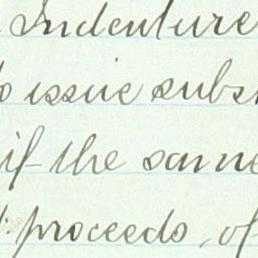 Indenture
to issue subs
if the same
proceeds, of